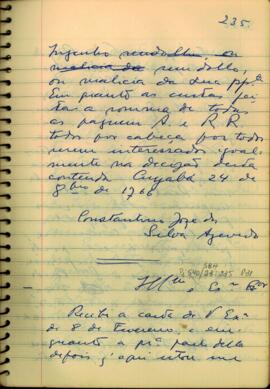 235.
Ingenho
malicia da seu dollo,
ou malicia da sua ppª.
Em quanto as custas fei-
tas a somma de todos
as paguem A. e R R
todos por cabeça por todos
serem interessados igoal-
mente na decizão desta
contenda Cuyabá 24 de
8bro de 1766
Constantino Joze da
Silva Azevedo
SBH
Pi 540 235 P31
Illmo e Exmo Snr
Recebi a carta de V Exª
de 8 de Fevereiro, e em
quanto a pª parte della
depois q' aqui estou me